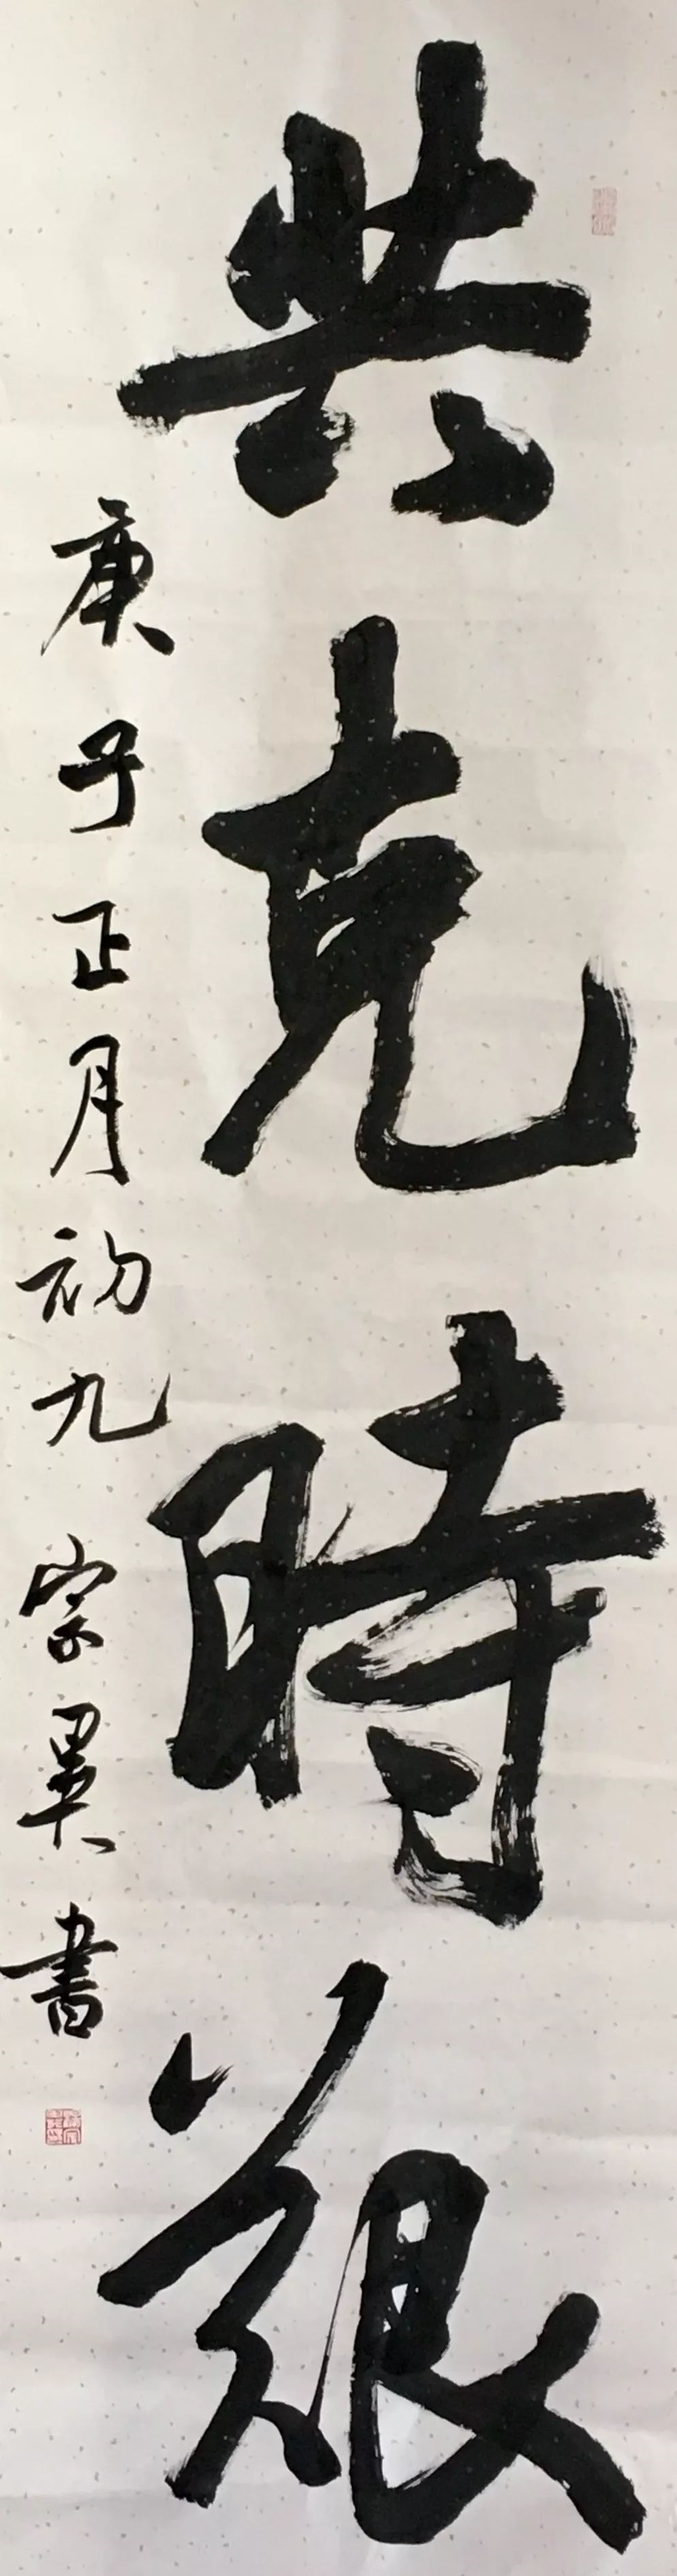 共克時艱
庚子正月初九宗異書